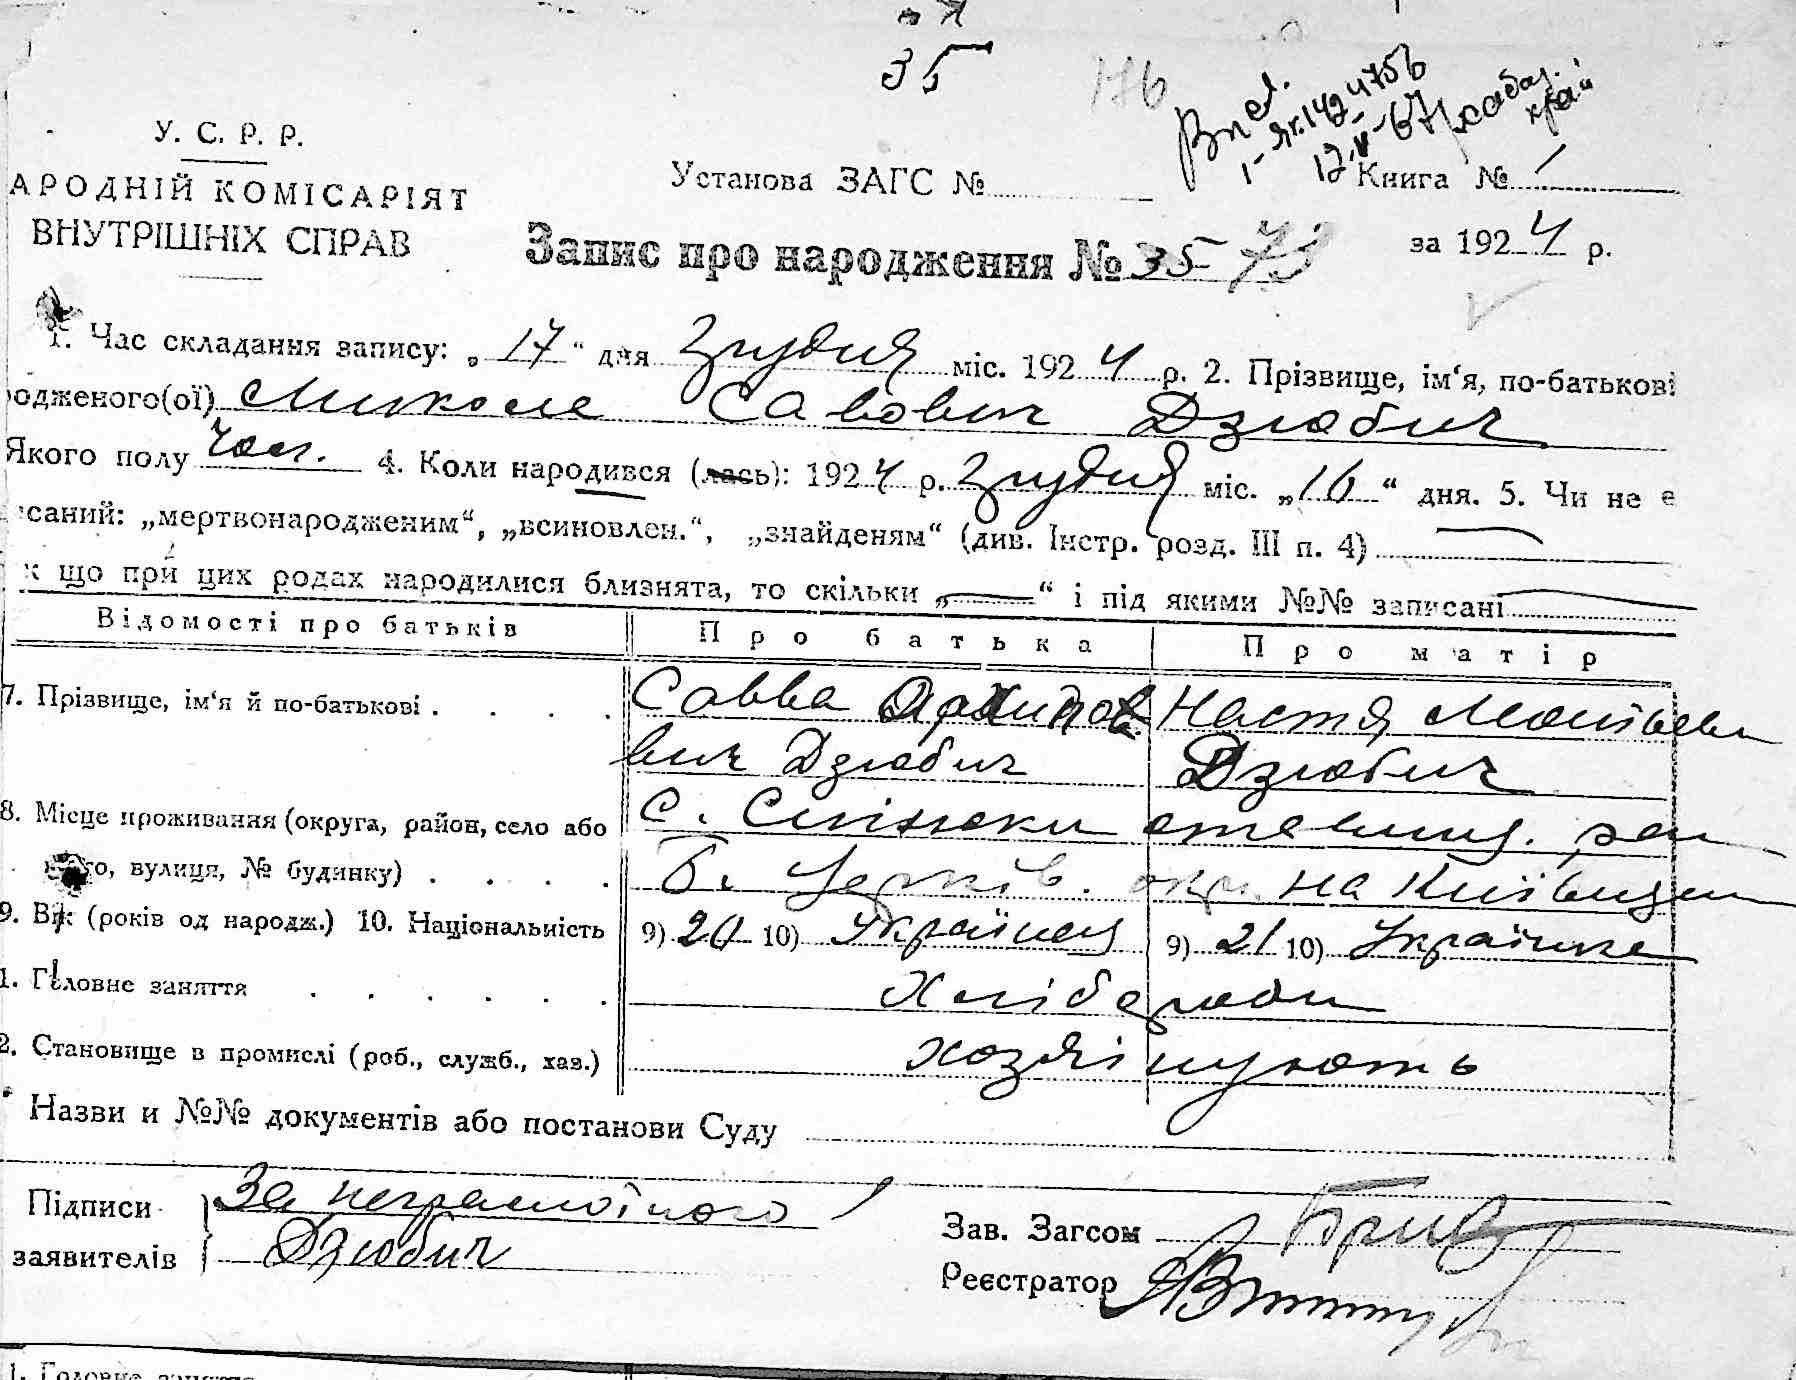 35
176
Вип.
1-Як. 1424756
12.V-67 Хабар.
край
У. С. Р. Р.
АРОДНІЙ КОМІСАРІЯТ
ВНУТРІШНІХ СПРАВ
Установа ЗАГС №
Книга № 1
Запис про народження № 35 73
за 1924 р.
1. Час складання запису: „17“ дня Грудня міс. 1924 р. 2. Прізвище, ім‘я, по-батькові
одженого(ої) Микола Савович Дзюбич
Якого полу Чол. 4. Коли народився (лась): 1924 р. Грудня міс. „16“ дня. 5. Чи не є
исаний: „мертвонародженим“, „всиновлен.“, „знайденям“ (див. Інстр. розд. III п. 4)
к що при цих родах народилися близнята, то скільки „—“ і під якими №№ записані
Відомості про батьків Про батька Про матір
7. Прізвище, ім‘я й по-батькові . . . . Савва Архипов Настя Матвіевн
вич Дзюбич Дзюбич
8. Місце проживання (округа, район, село або с. Сніжки ставищ. рай
о, вулиця, № будинку) . . . . Б. Церків. окр. на Київщин
9. Вік (років од народж.) 10. Національність 9) 20 10) Українец 9) 21 10) Українка
1. Головне заняття . . . . . . Хлібороби
2. Становище в промислі (роб., служб., хаз.) хозяінують
Назви и №№ документів або постанови Суду
Підписи За неграмотного
заявителів Дзюбич
Зав. Загсом
Реєстратор
1. Головне заняття